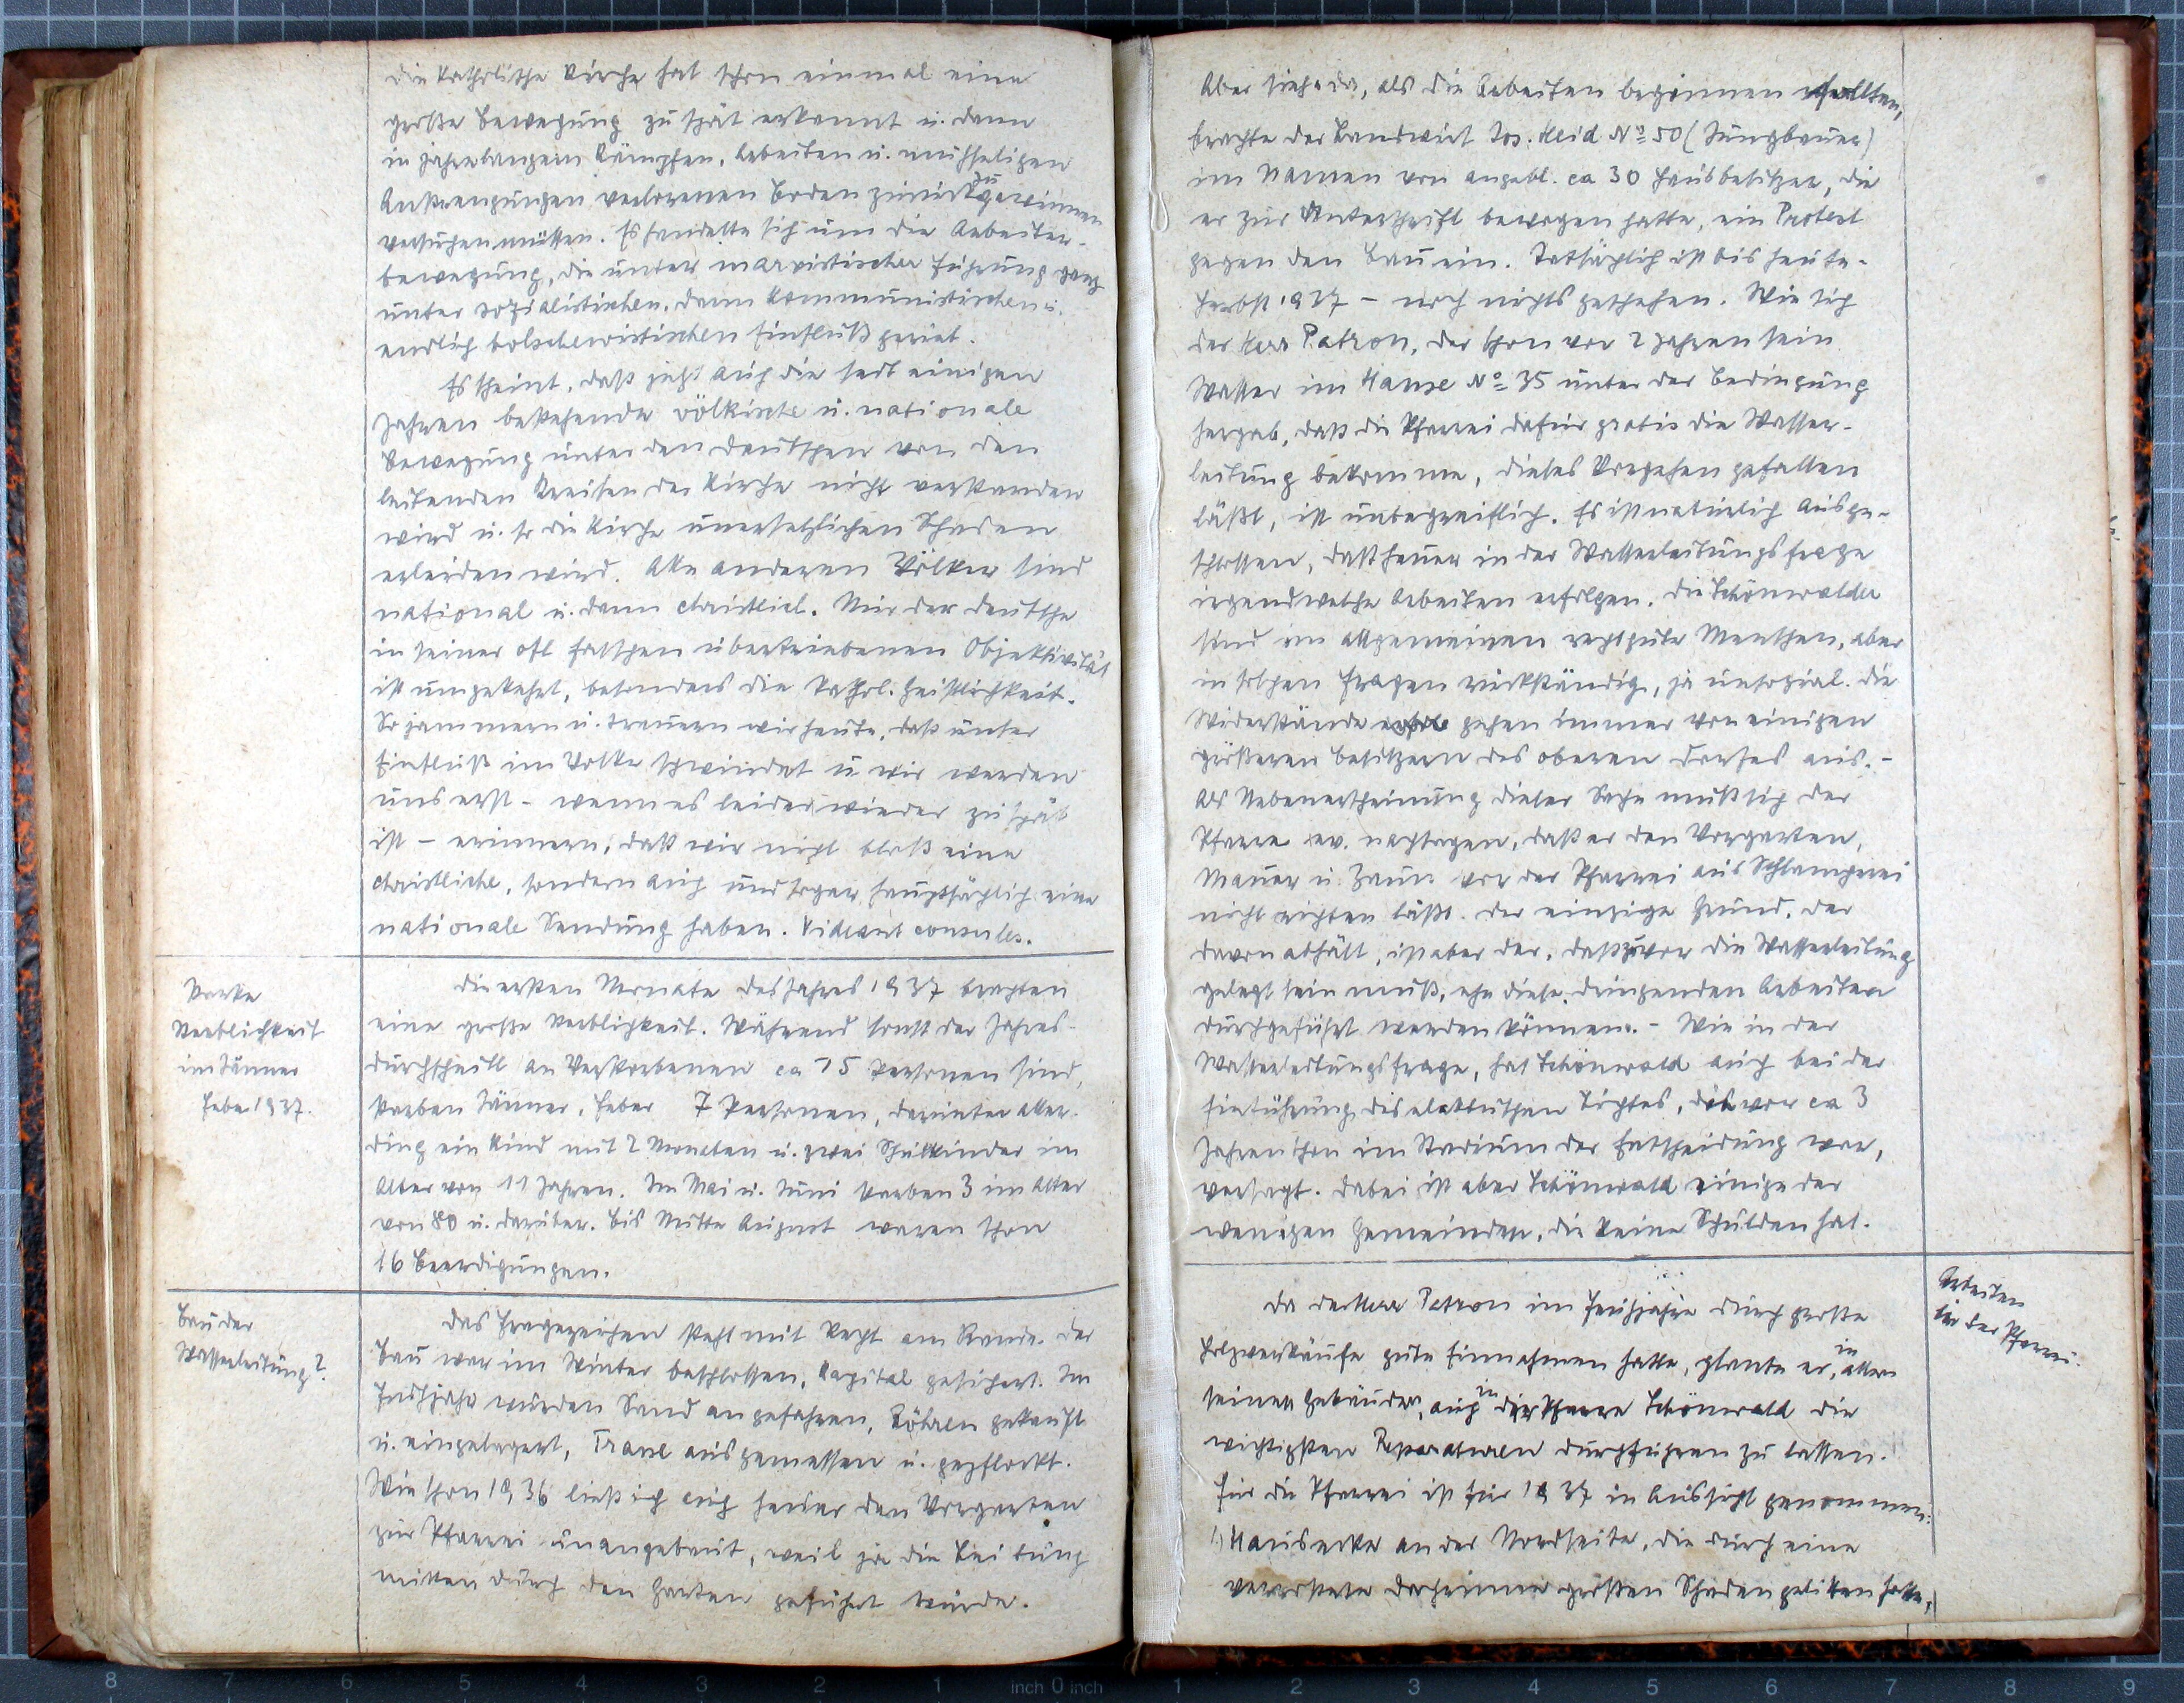 die katholische Kirche hat schon einmal eine
große Bewegung zu spät erkannt u. dann
in jahrelangem Kämpfen, Arbeiten u. mühseligen
Anstrengungen verlorenen Boden zurückzugewinnen
versuchen müssen. Es handelte sich um die Arbeiter-
bewegung, die unter marxistischer Führung ganz
unter sozialistischen, dann kommunistischen u.
endlich bolschewistischen Einfluß geriet.
Es scheint, daß jetzt auch die seit einigen
Jahren bestehende völkische u. nationale
Bewegung unter den Deutschen von den
leitenden Kreisen der Kirche nicht verstanden
wird u. so die Kirche unersetzlichen Schaden
erleiden wird. Alle anderen Völker sind
national u. dann christlich. Nur der Deutsche
in seiner oft falschen übertriebenen Objektivität
ist umgekehrt, besonders die kathol. Geistlichkeit.
So jammern u. trauern wir heute, daß unser
Einfluß im Volke schwindet u wir werden
uns erst - wenn es leider wieder zu spät
ist - erinnern, daß wir nicht bloß eine
christliche, sondern auch und sogar hauptsächlich eine
nationale Sendung haben. Videant consules.
Starke
Sterblichkeit
im Jänner
Feber 1937.
Die ersten Monate des Jahres 1937 brachten
eine große Sterblichkeit. Während sonst der Jahres-
durchschnitt an Verstorbenen ca 15 Personen sind,
starben Jänner, Feber 7 Personen, darunter aller-
ding ein Kind mit 2 Monaten u. zwei Schulkinder im
Alter von 11 Jahren. Im Mai u. Juni starben 3 im Alter
von 80 u. darüber. Bis Mitte August waren schon
16 Beerdigungen.
Bau der
Wasserleitung?
Das Fragezeichen steht mit Recht am Rande. Der
Bau war im Winter beschlossen, Kapital gesichert. Im
Frühjahr wurden Sand angefahren, Röhren gekauft
u. eingelagert, Trase ausgemessen u. gepflockt.
Wie schon 1936 ließ ich auch heuer den Vorgarten
zur Pfarrei unangebaut, weil ja die Leitung
mitten durch den Garten geführt würde.
Aber siehe da, als die Arbeiten beginnen sollten,
brachte der Landwirt Jos. Heid No 50 (Jungbauer)
im Namen von angebl. ca 30 Hausbesitzer, die
er zur Unterschrift bewogen hatte, ein Protest
gegen den Bau ein. Tatsächlich ist bis heute -
Herbst 1937 - noch nichts geschehen. Wie sich
der Herr Patron, der schon vor 2 Jahren sein
Wasser im Hause No 35 unter der Bedingung
hergab, daß die Pfarrei dafür gratis die Wasser-
leitung bekomme, dieses Vorgehen gefallen
läßt, ist unbegreiflich. Es ist natürlich ausge-
schlossen, daß heuer in der Wasserleitungsfrage
irgendwelche Arbeiten erfolgen. Die Schönwalder
sind im allgemeinen recht gute Menschen, aber
in solchen Fragen rückständig, ja unsozial. Die
Widerstände gehen immer von einigen
größeren Besitzern des oberen Dorfes aus. -
Als Nebenerscheinung dieser Sache muß sich der
Pfarrer ev. nachsagen, daß er den Vorgarten,
Mauer u. Zaun vor der Pfarrei aus Schlamperei
nicht richten läßt. Der einzige Grund, der
davon abhält, ist aber der, daß zuvor die Wasserleitung
gelegt sein muß, ehe diese dringenden Arbeiten
durchgeführt werden können. - Wie in der
Wasserleitungsfrage, hat Schönwald auch bei der
Einführung des elektrischen Lichtes, das vor ca 3
Jahren schon im Stadium der Entscheidung war,
versagt. Dabei ist aber Schönwald einige der
wenigen Gemeinden, die keine Schulden hat.
Arbeiten
in der Pfarrei.
Da der Herr Patron im Frühjahre durch große
Holzverkäufe gute Einnahmen hatte, plante er, in allen
seinen Gebäuden, auch in der Pfarre Schönwald die
wichtigsten Reparaturen durchführen zu lassen.
Für die Pfarrei ist für 1937 in Aussicht genommen:
1) Hausecke an der Nordseite, die durch eine
verrostete Dachrinne großen Schaden gelitten hatte,